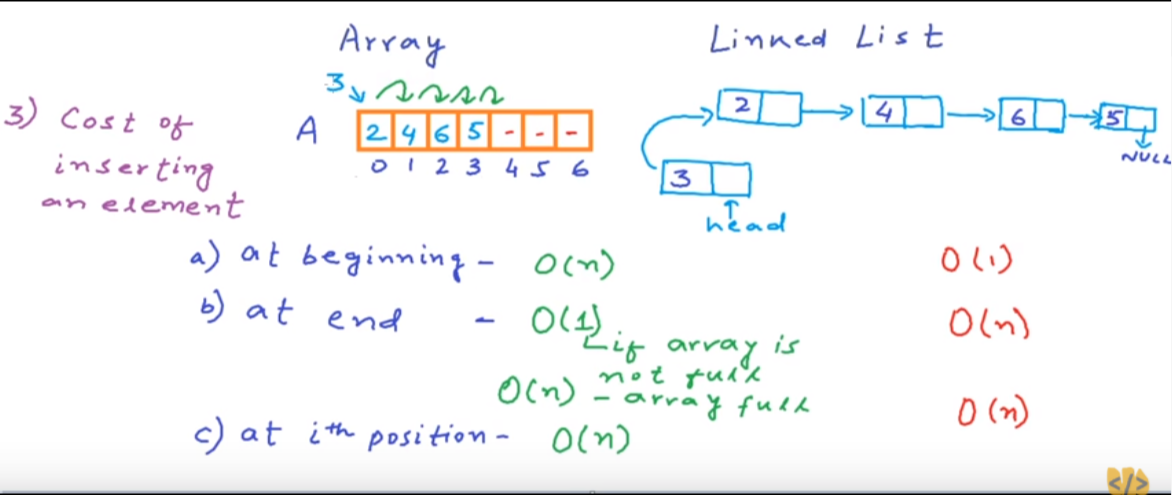 Array
Linked List
3) Cost of
inserting
an element
3
A
2 4 6 5 - - -
0 1 2 3 4 5 6
2
4
6
5
NULL
3
head
a) at beginning - O(n)
O(1)
b) at end - O(1)
if array is
not full
O(n)
O(n) - array full
c) at ith position - O(n)
O(n)
</>